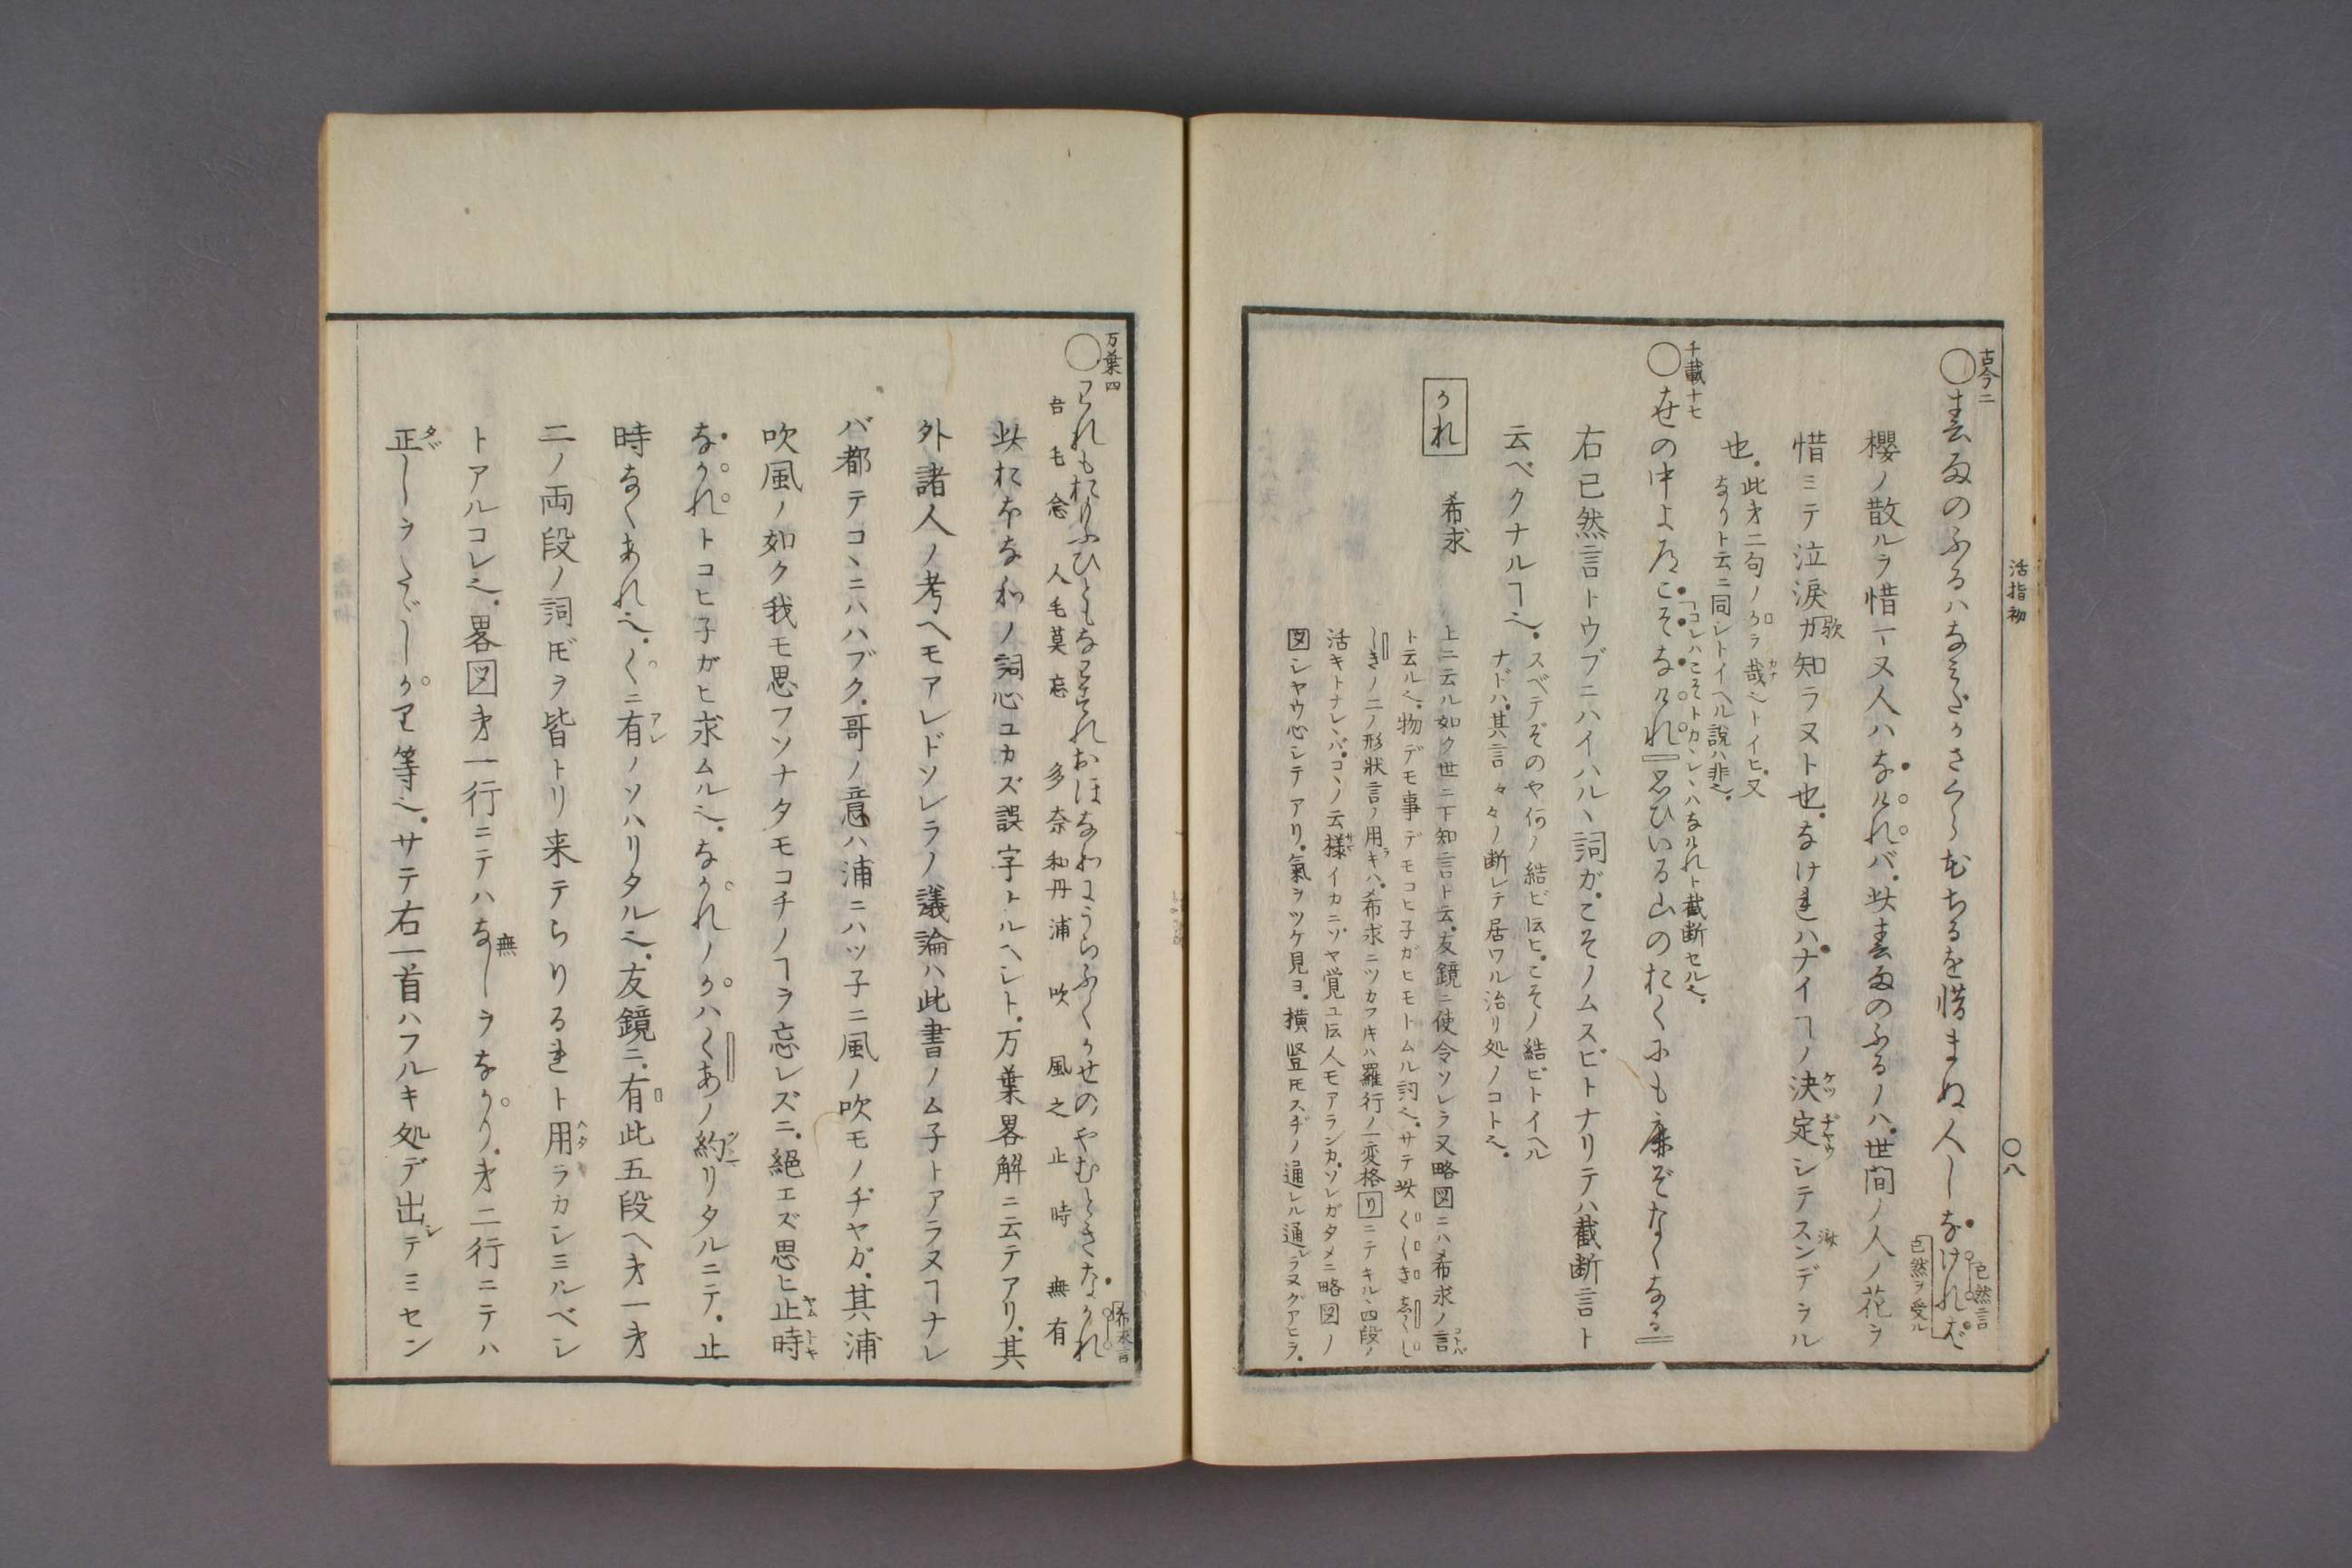 活指初
〇八
古今二
〇春雨のふるハなみだかさくら花ちるを惜まぬ人しなければ
已然言
已然ヲ受ル
櫻ノ散ルヲ惜ー又人ハなければバ、此春雨のふるノハ、世間ノ人ノ花ヲ
惜ミテ泣涙カ知ラヌト也、なければハナイヿノ決定シテスンデヲル
歟
ケツヂヤウ
也、
此才二句ノかヲ哉也トイヒ、又
なりト云ニ同シトイヘル説ハ非也、
千載十七
〇世の中よ道こそなけれ思ひいる山のおくにも鹿ぞなくなる
「コレハこそトカヽレヽハなけれト截断セル也、
右已然言トウブニハイハルヽ詞ガ、こそノムスビトナリテハ截断言ト
云ベクナルヿ也、
スベテぞのや何ノ結ビ伝ヒ、こそノ結ビトイヘル
ナドハ、其言々々ノ断レテ居ワル治リ処ノコト也、
かれ 希求
上ニ云ル如ク世ニ下知言ト云、友鏡ニ使令ソレヲ又略図ニハ希求ノ言
ト云ル也、物デモ事デモコヒ子ガヒモトムル詞也、サテ此
しきノ二ノ形状言ノ用キハ、希求ニツカフキハ羅行ノ一変格リニテキルヽ四段ノ
活キトナレヽバ、コヽノ云様イカニゾヤ覚ユ伝人モアランカ、ソレガタメニ略図ノ
図シヤウ心シテアリ、氣ヲツケ見ヨ、横竪モスヂノ通レル通ラヌグアヒヲ、
万葉四
〇われもおもふひともなわすれおほなわにうらふくかせのやむときなかれ
希求言
吾毛念人毛莫忘多奈和丹浦吹風之止時無有
此おほなわノ詞心ユカズ誤字トルヘシト、万葉畧解ニ云テアリ、其
外諸人ノ考ヘモアレドソレラノ議論ハ此書ノム子トアラヌヿナレ
バ都テコヽニハハブク、哥ノ意ハ浦ニハツ子ニ風ノ吹モノヂヤガ、其浦
吹風ノ如ク我モ思フソナタモコチノヿヲ忘レズニ、絶エズ思ヒ止時
ヤムトキ
なかれトコヒ子ガヒ求ムル也、なかれノかハくあノ約リタルニテ、止
時なくあれ也、くニ有ノソハリタル也、友鏡ニ、有此五段ヘ才一才
アレ
二ノ両段ノ詞ドモヲ皆トリ来テらりるれト用ヲカシミルベシ
トアルコレ也、畧図才一行ニテハなしヲなかり、才二行ニテハ
無
正しヲたゞしかり等也、サテ右一首ハフルキ処デ出テミセン
タヾ
シ